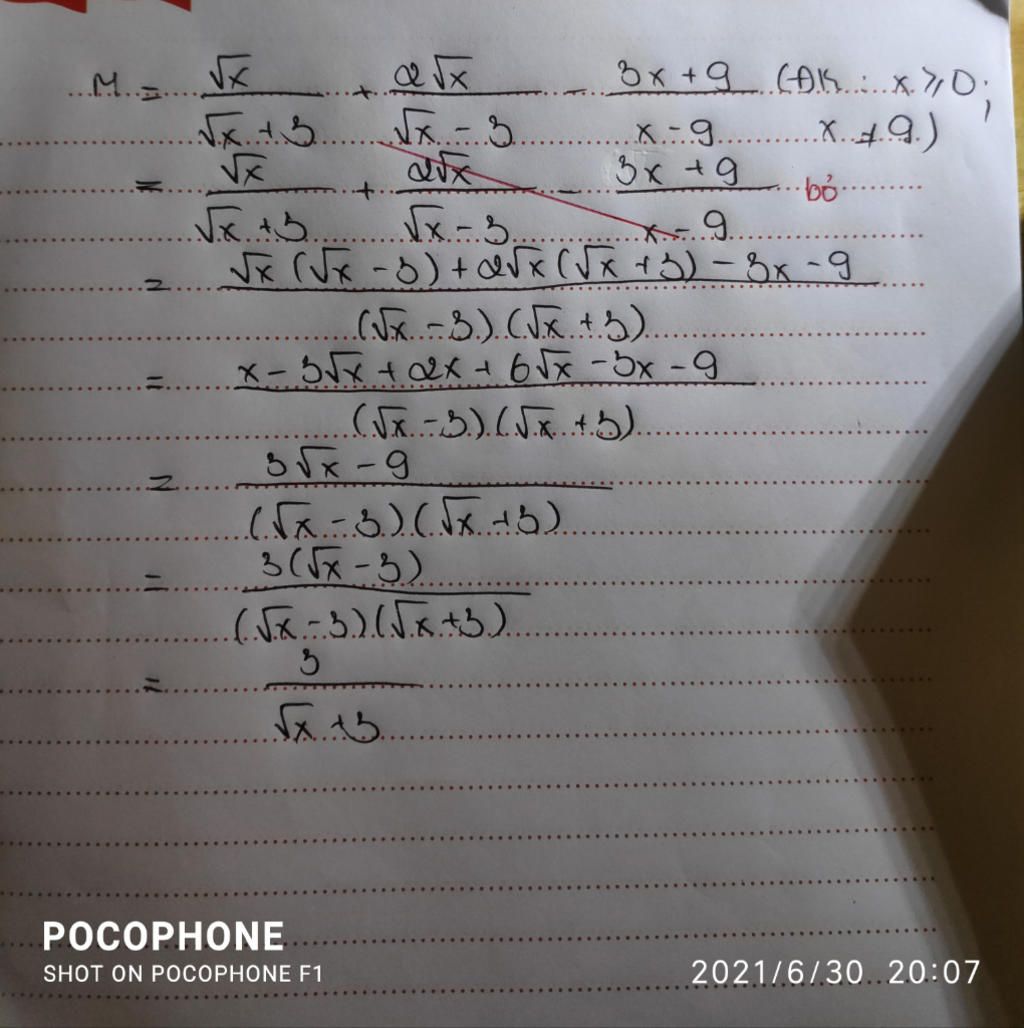 M = √x / (√x + 3) + 2√x / (√x - 3) - (3x + 9) / (x - 9) (ĐK : x ≥ 0; x ≠ 9)
= √x / (√x + 3) + 2√x / (√x - 3) - (3x + 9) / (x - 9) bỏ
= (√x (√x - 3) + 2√x (√x + 3) - 3x - 9) / ((√x - 3)(√x + 3))
= (x - 3√x + 2x + 6√x - 3x - 9) / ((√x - 3)(√x + 3))
= (3√x - 9) / ((√x - 3)(√x + 3))
= 3(√x - 3) / ((√x - 3)(√x + 3))
= 3 / (√x + 3)
POCOPHONE
SHOT ON POCOPHONE F1
2021/6/30 20:07